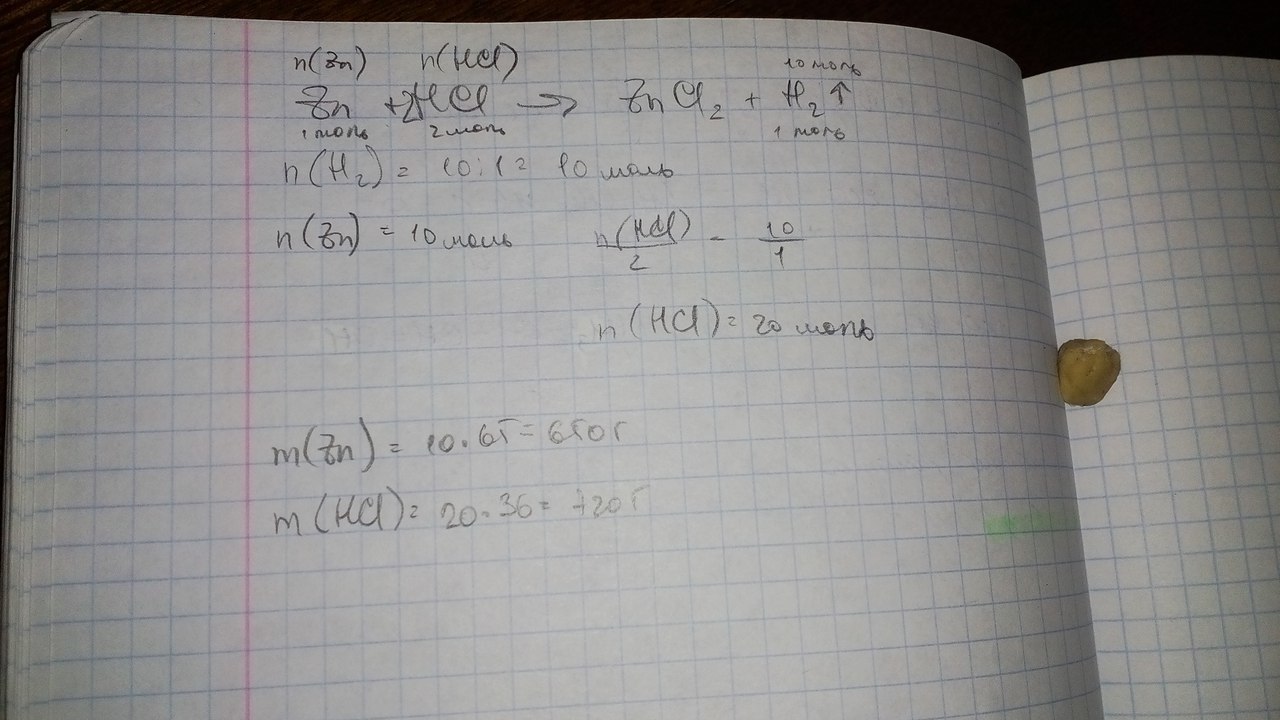 n(Zn) n(HCl) 10 моль
Zn + 2HCl → ZnCl₂ + H₂↑
1 моль 2 моль 1 моль
n(H₂) = 10:1 = 10 моль
n(Zn) = 10 моль n(HCl)/2 = 10/1
n(HCl) = 20 моль
m(Zn) = 10·65 = 650 г
m(HCl) = 20·36 = 720 г